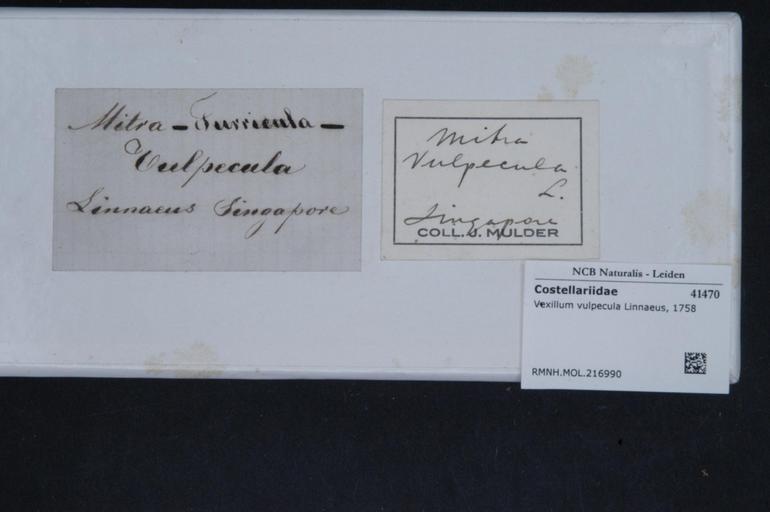 Mitra – Turricula –
Vulpecula
Linnaeus Singapore
Mitra
Vulpecula
L.
Singapore
COLL. J. MULDER
NCB Naturalis - Leiden
Costellariidae 41470
Vexillum vulpecula Linnaeus, 1758
RMNH.MOL.216990